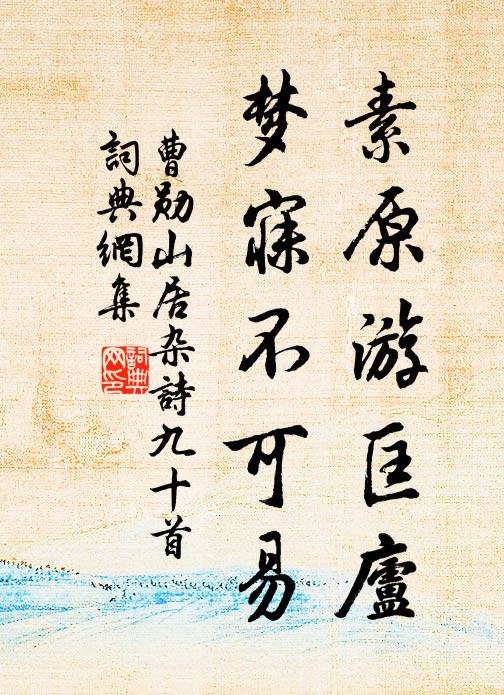 素原游匡廬
梦寐不可易
曹勋山居杂詩九十首
詞典網集
詞典网印